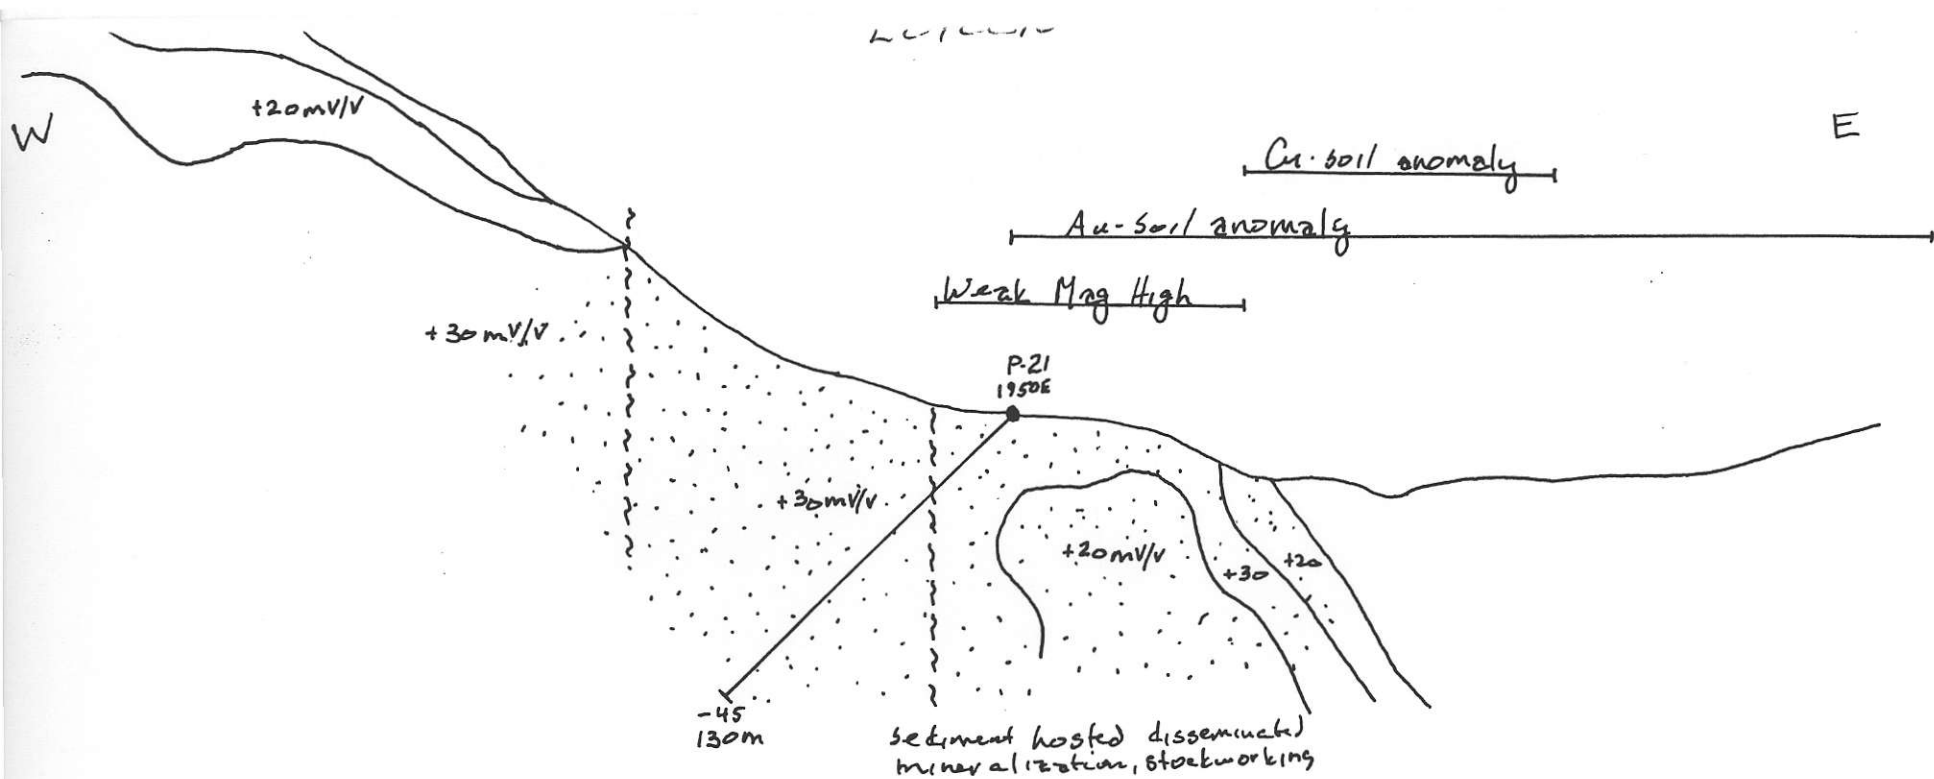 +20mV/V
W
E
Cu-soil anomaly
Au-soil anomaly
Weak Mag High
+30mV/V
P-21
1950E
+30mV/V
+20mV/V
+30
+20
-45
130m
Sediment hosted disseminated
mineralization, stockworking